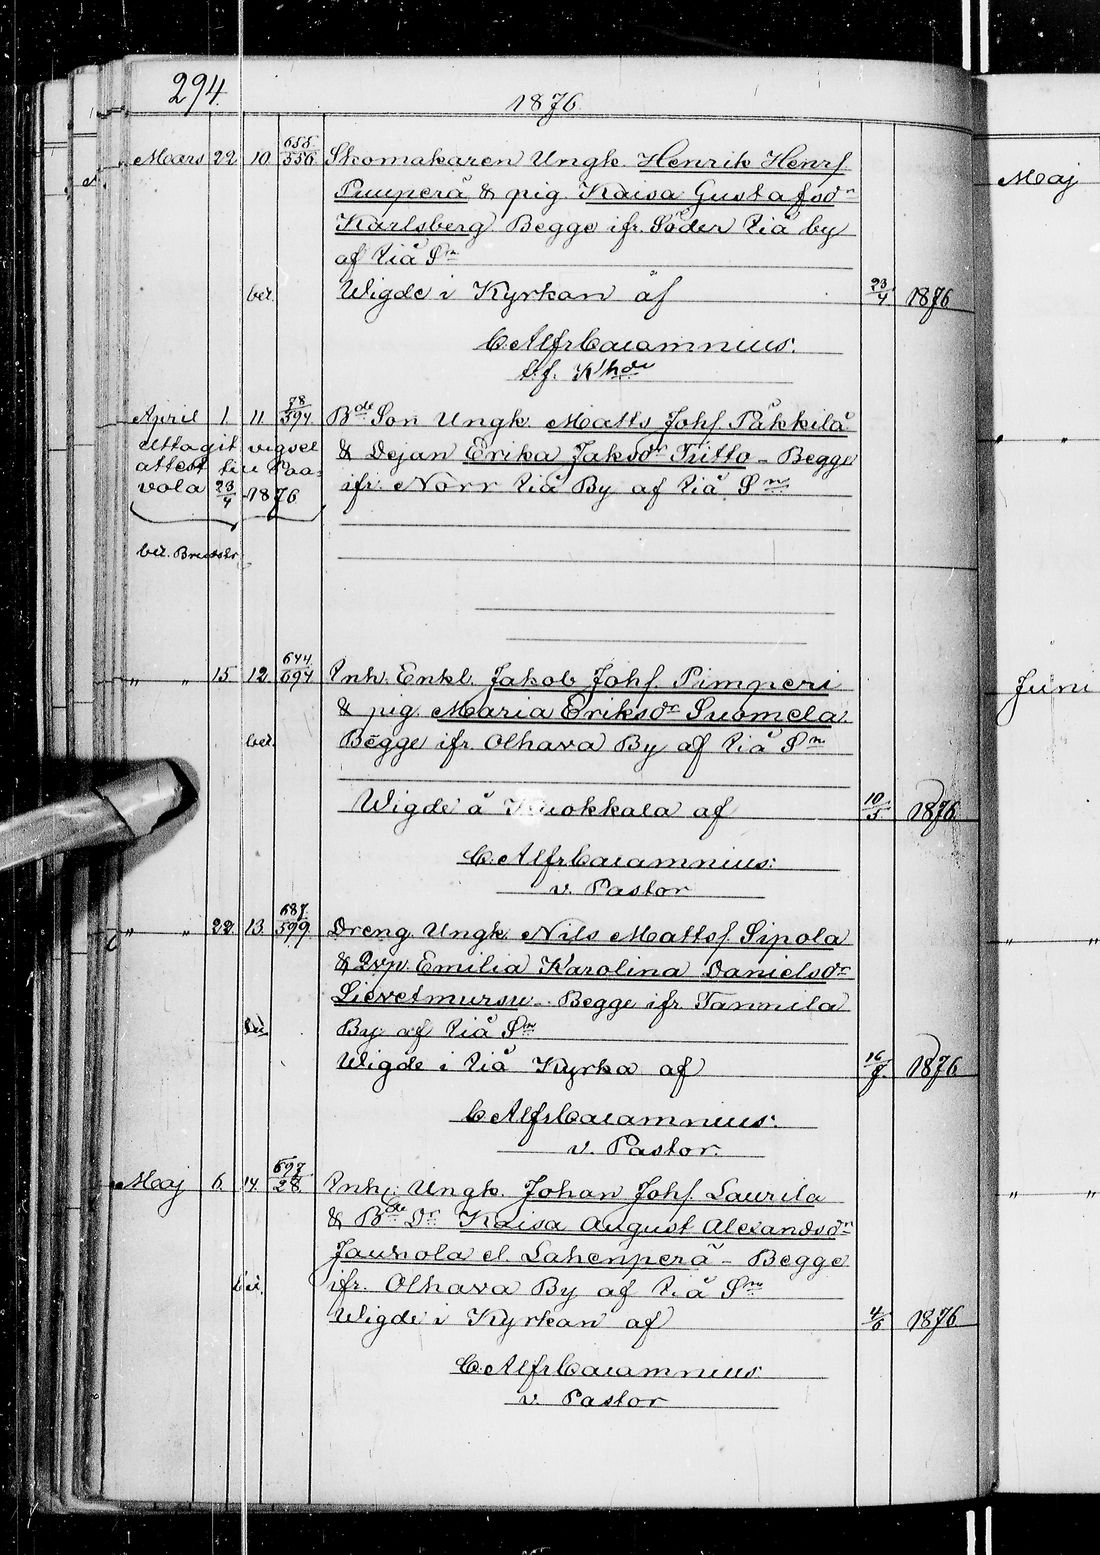 294.
1876
Mars 22 10 655/556 Skomakaren Ungk. Henrik Henrs.
Puuperä & pig. Kaisa Gustafsdr
Karlsberg Begge ifr. Söder Iiå by
af Iiå Sn
ber. Wigde i Kyrkan af 23/4 1876
C. Alfr Cajamnius.
t.f. Khde
April 1. 11 78/594 Bde Son Ungk. Matts Johs. Päkkilä
uttagit vigsel & Dejan Erika Jaksdr Tiitto - Begge
attest till Paa- ifr. Norr Iiå By af Iiå Sn
vola 23/4 1876
ber. Brudstr.
" " 15 12 644/694 Inh. Enkl. Jakob Johs. Pimperi
& pig Maria Eriksdr Suomela
ber. Begge ifr Olhava By af Iiå Sn
Wigde å Kuokkala af 10/5 1876
C. Alfr Cajamnius.
v. Pastor
" " 22 13 687/599 Dreng Ungk. Nils Mattss. Sipola
& Qvp. Emilia Karolina Danielsdr
Lievetmursu - Begge ifr. Tannila
By af Iiå Sn
Wigde i Iiå Kyrka af 16/7. 1876
C Alfr Cajamnius.
v. Pastor.
Maj 6 14 697/28 Inh. Ungk. Johan Johs. Laurila
& Bde Dr Kaisa August Alexandsdr
Jauhola el. Lahenperä - Begge
ber. ifr. Olhava By af Iiå Sn
Wigde i Kyrkan af 4/6 1876
C. Alfr Cajamnius
v. Pastor
Maj
" "
Juni
" "
" "